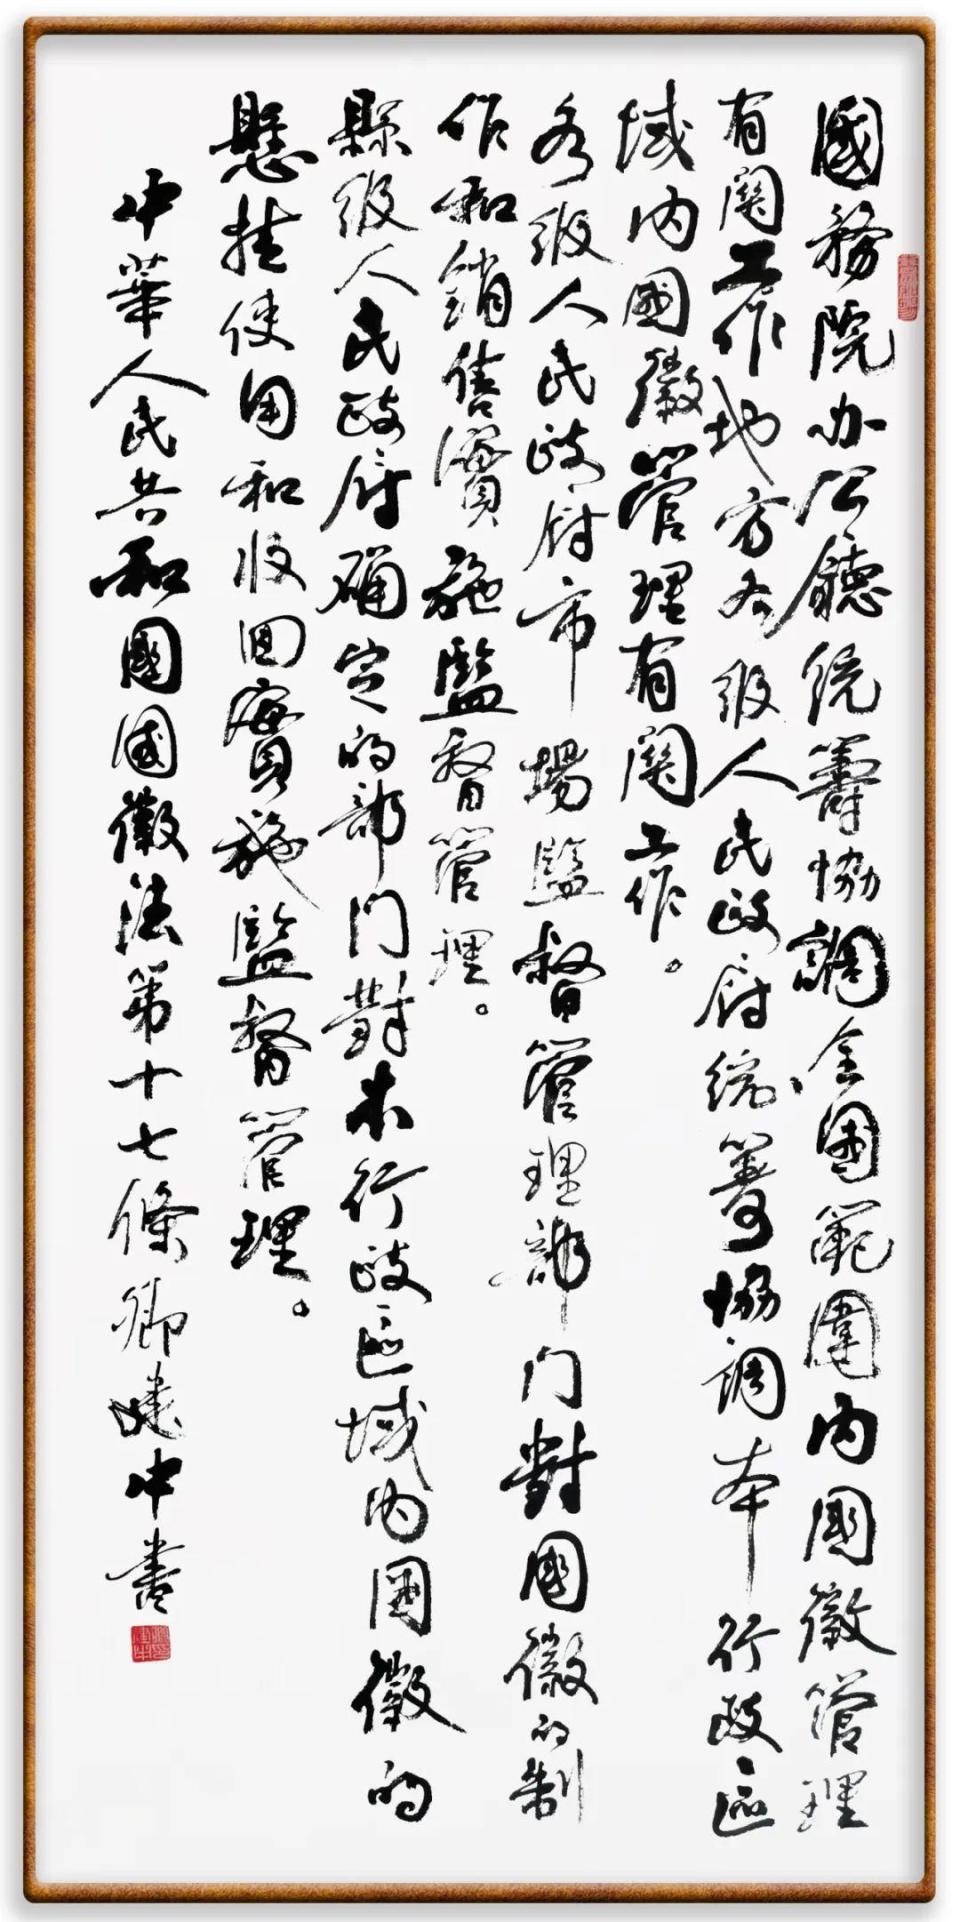 國務院办公廳統籌協調全國範圍内國徽管理
有關工作地方各级人民政府統籌協調本行政區
域内國徽管理有關工作。
各级人民政府市場監督管理部门對國徽的制
作和銷售實施監督管理。
縣级人民政府确定的部门對本行政區域内國徽的
懸挂使用和收回實施監督管理。
中華人民共和國國徽法第十七條卿建中書